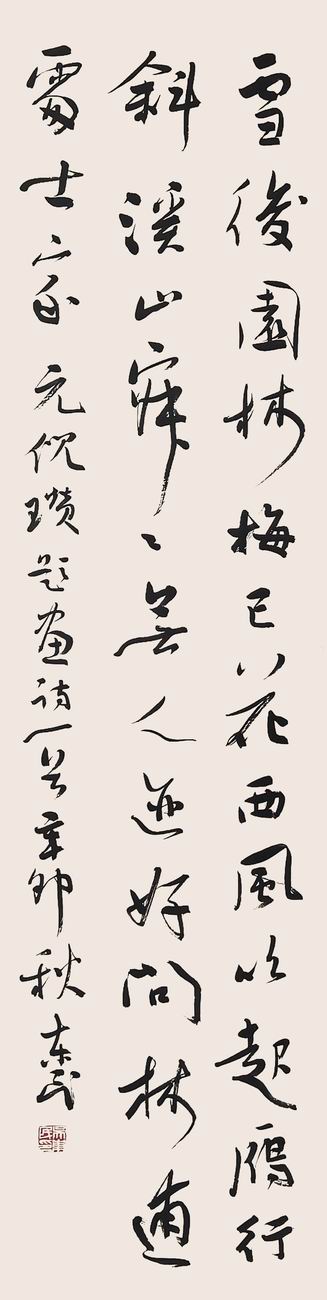 雪後園林梅已花西風吹起鴈行
斜溪山寂々無人迹好問林逋
處士家 元倪瓚題畫詩一首 辛卯秋